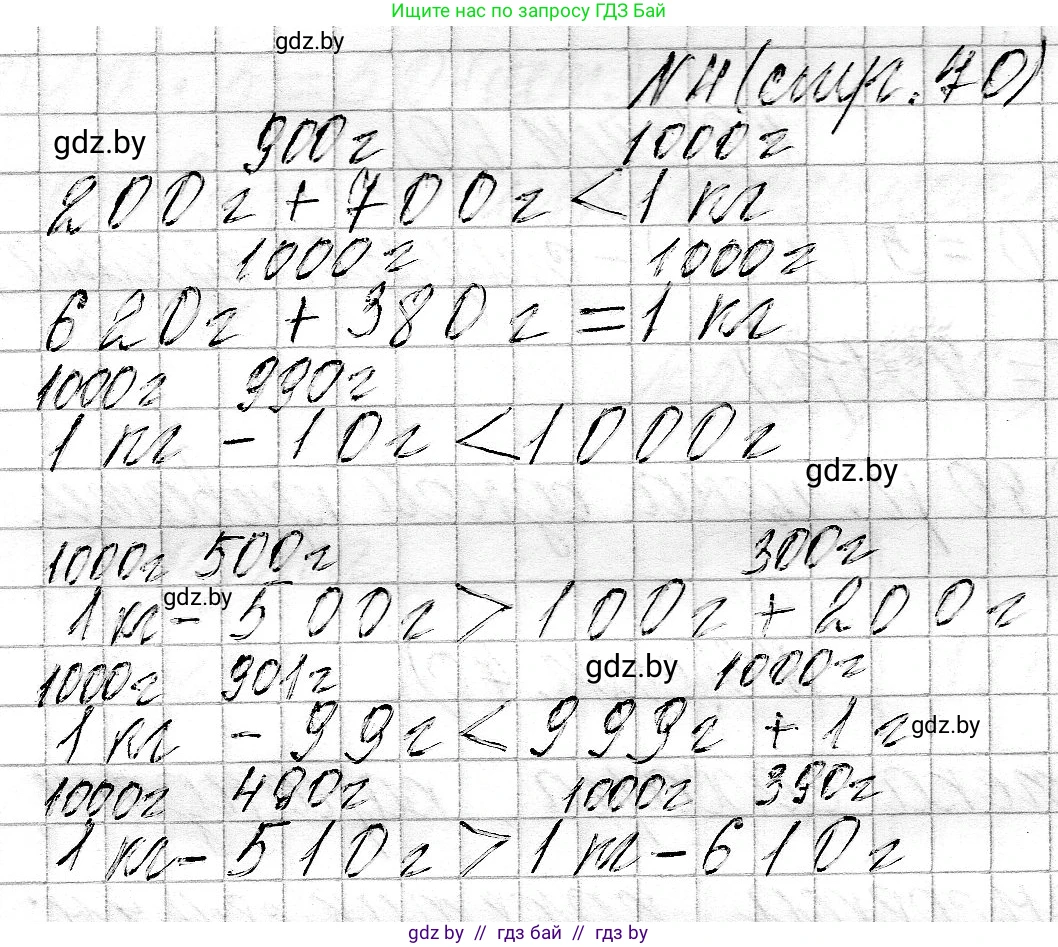 Ищите нас по запросу ГДЗ Бай
gdz.by
№4 (стр. 40)
gdz.by
900г 1000г
200г + 700г < 1 кг
1000г 1000г
620г + 380г = 1 кг
1000г 990г
1 кг - 10г < 1000г
gdz.by
1000г 500г 300г
gdz.by
1 кг - 500г > 100г + 200г
1000г 901г gdz.by 1000г
1 кг - 99г < 999г + 1 г gdz.by
1000г 490г 1000г 390г
1 кг - 510г > 1 кг - 610г
gdz.by // гдз бай // gdz.by